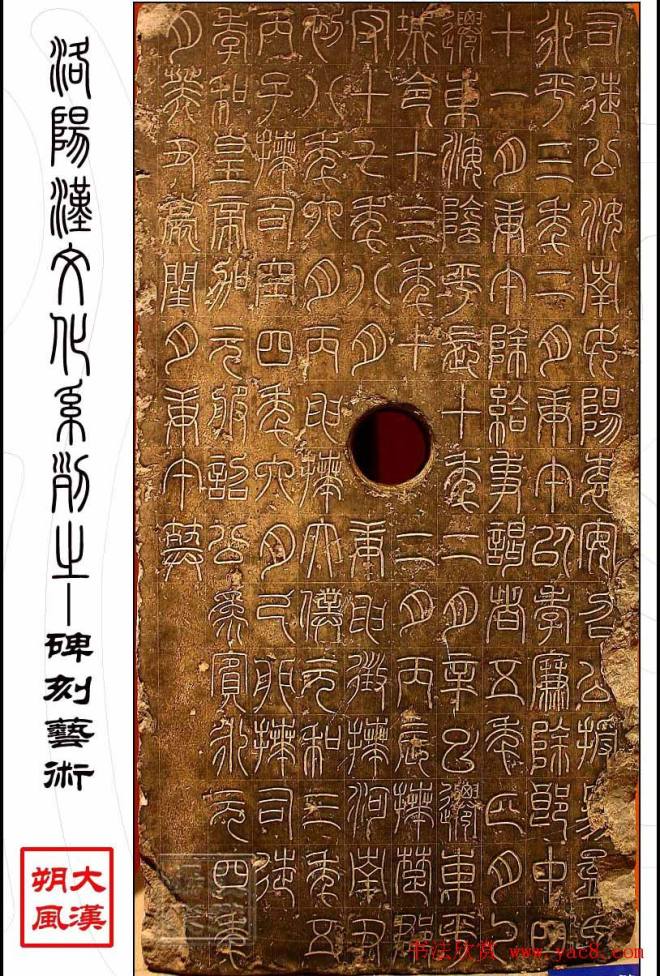 司徒公汝南女陽袁安召公授易孟氏
永平三年二月庚午以孝廉除郎中四
十一月庚午除給事謁者五年正月乙
遷東海陰平長十年二月辛巳遷東平
城令十三年十二月丙辰拜楚郡
守十七年八月庚申徵拜河南尹
初八年六月丙申拜太僕元和三年五
丙子拜司空四年六月己卯拜司徒
孝和皇帝加元服詔公為賓永元四年
月癸丑薨閏月庚午葬
洛陽漢文化系列之—碑刻藝術
大漢
朔風
书法欣赏 www.yac8.com